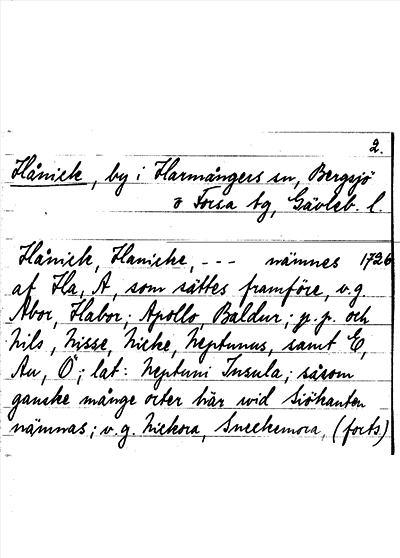 2.
Hånick, by i Harmångers sn, Bergsjö
o Forsa tg, Gävleb. l.
Hånick, Hanicke, --- nämnes 1726
af Ha, A, som sättes framföre, v.g
Abor, Habor; Apollo, Baldur; p.p. och
Nils, Nisse, Nicke, Neptunus, samt E,
Au, Ö; lat: Neptuni Insula; såsom
ganske månge orter här wid Siökanten
nämnas; v.g. Nickora, Sneckemora, (forts)